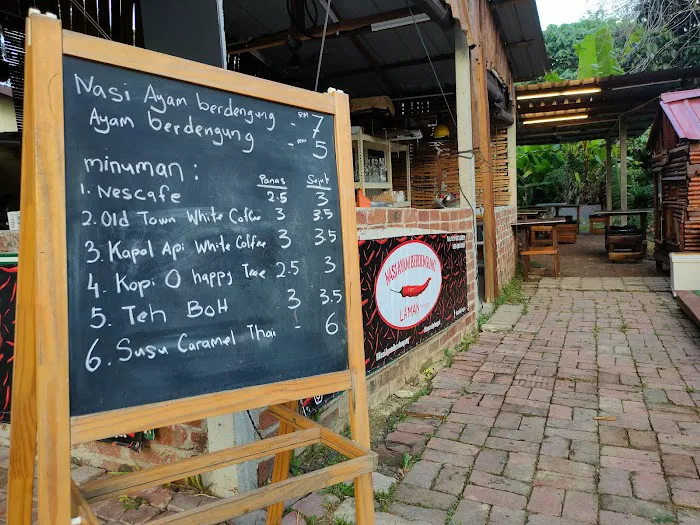 Nasi Ayam berdengung - RM 7
Ayam berdengung - RM 5
minuman :
Panas Sejuk
1. Nescafe 2.5 3
2. Old Town White Coffee 3 3.5
3. Kapal Api White Coffee 3 3.5
4. Kopi O happy Tree 2.5 3
5. Teh BOH 3 3.5
6. Susu Caramel Thai - 6
NASI AYAM BERDENGUNG
LAMAN